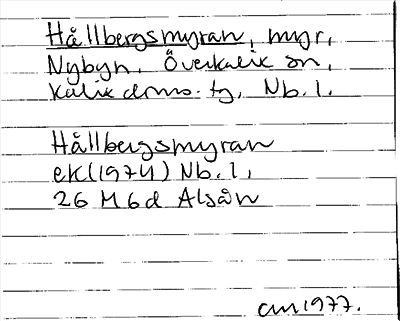 Hållbergsmyran, myr,
Nybyn, Överkalix sn,
Kalix dms. tg, Nb. l.
Hållbergsmyran
ek (1974) Nb. l,
26 M 6d Alsån
am 1977.